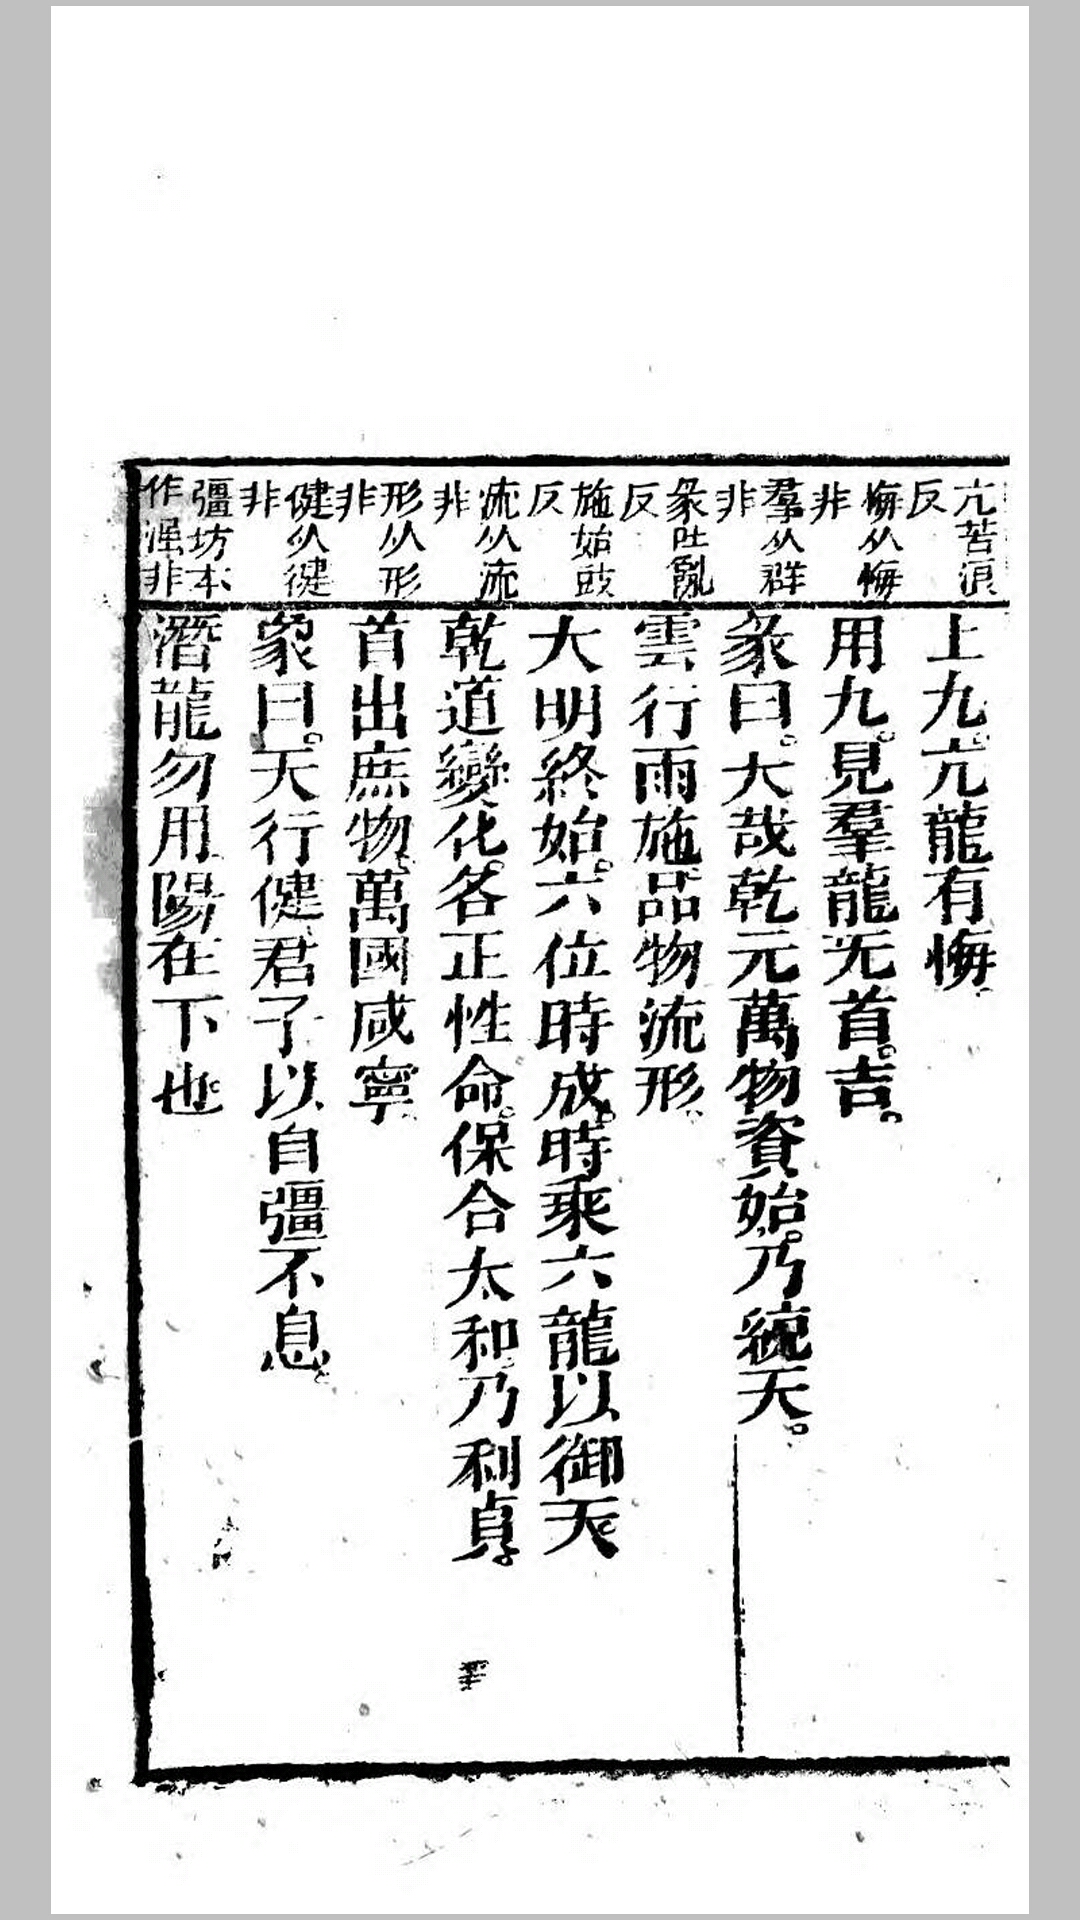 亢苦浪
反
悔从悔
非
羣从群
非
彖吐亂
反
施始豉
反
流从流
非
形从形
非
健从徤
非
彊坊本
作强非
上九。亢龍有悔。
用九。見羣龍无首。吉。
彖曰。大哉乾元。萬物資始。乃統天。
雲行雨施。品物流形。
大明終始。六位時成。時乘六龍以御天。
乾道變化。各正性命。保合太和。乃利貞。
首出庶物。萬國咸寧。
象曰。天行健。君子以自彊不息。
潛龍勿用。陽在下也。